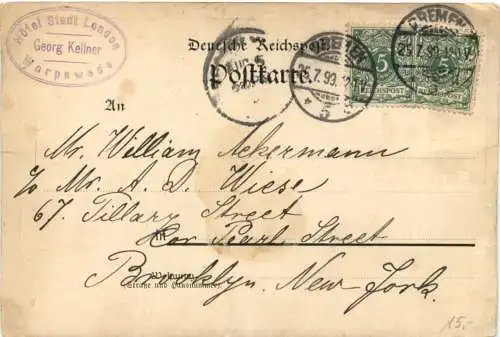 Hôtel Stadt London
Georg Kellner
Worpswede
Deutsche Reichspost
Postkarte
BREMEN
25.7.99.
BREMEN
25.7.99.
5
5
REICHSPOST
REICHSPOST
An
Mr. William Ackermann
c/o Mr. A. D. Wiese
67. Tillary Street
in
Cor Pearl Street
Brooklyn. New York.
Wohnung
(Straße und Hausnummer)
15,-